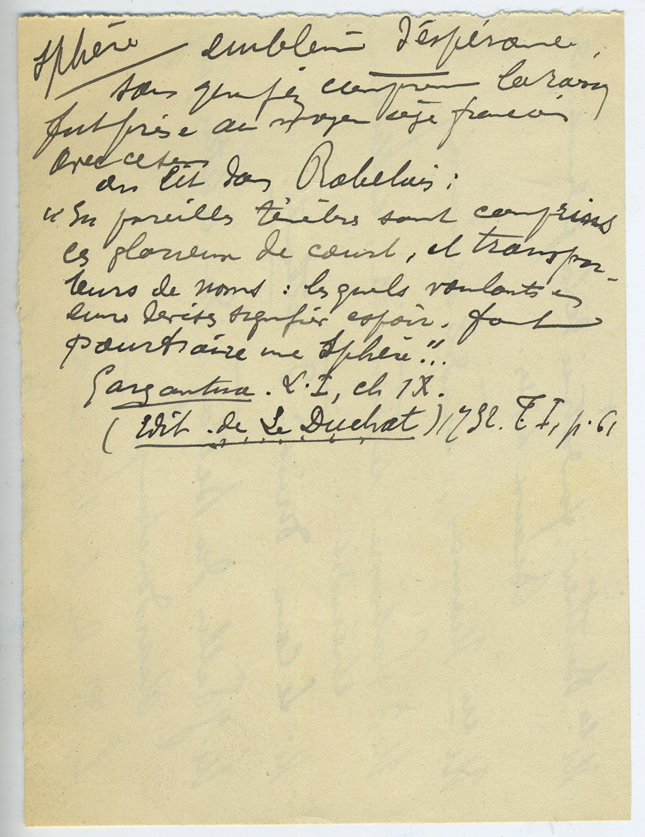 Sphère emblème d'espérance,
sans qu'on puisse comprendre la raison
fut prise au moyen âge francais
avec ce sens
on lit dans Rabelais :
"En pareilles ténèbres sont comprins
ces glorieux de court, et transpor-
teurs de noms : lesquels voulants en
leurs devises signifier espoir, font
pourtraire une Sphère".
Gargantua. L. I, ch IX.
(Edit. de Le Duchat) 1732. T I, p. 61